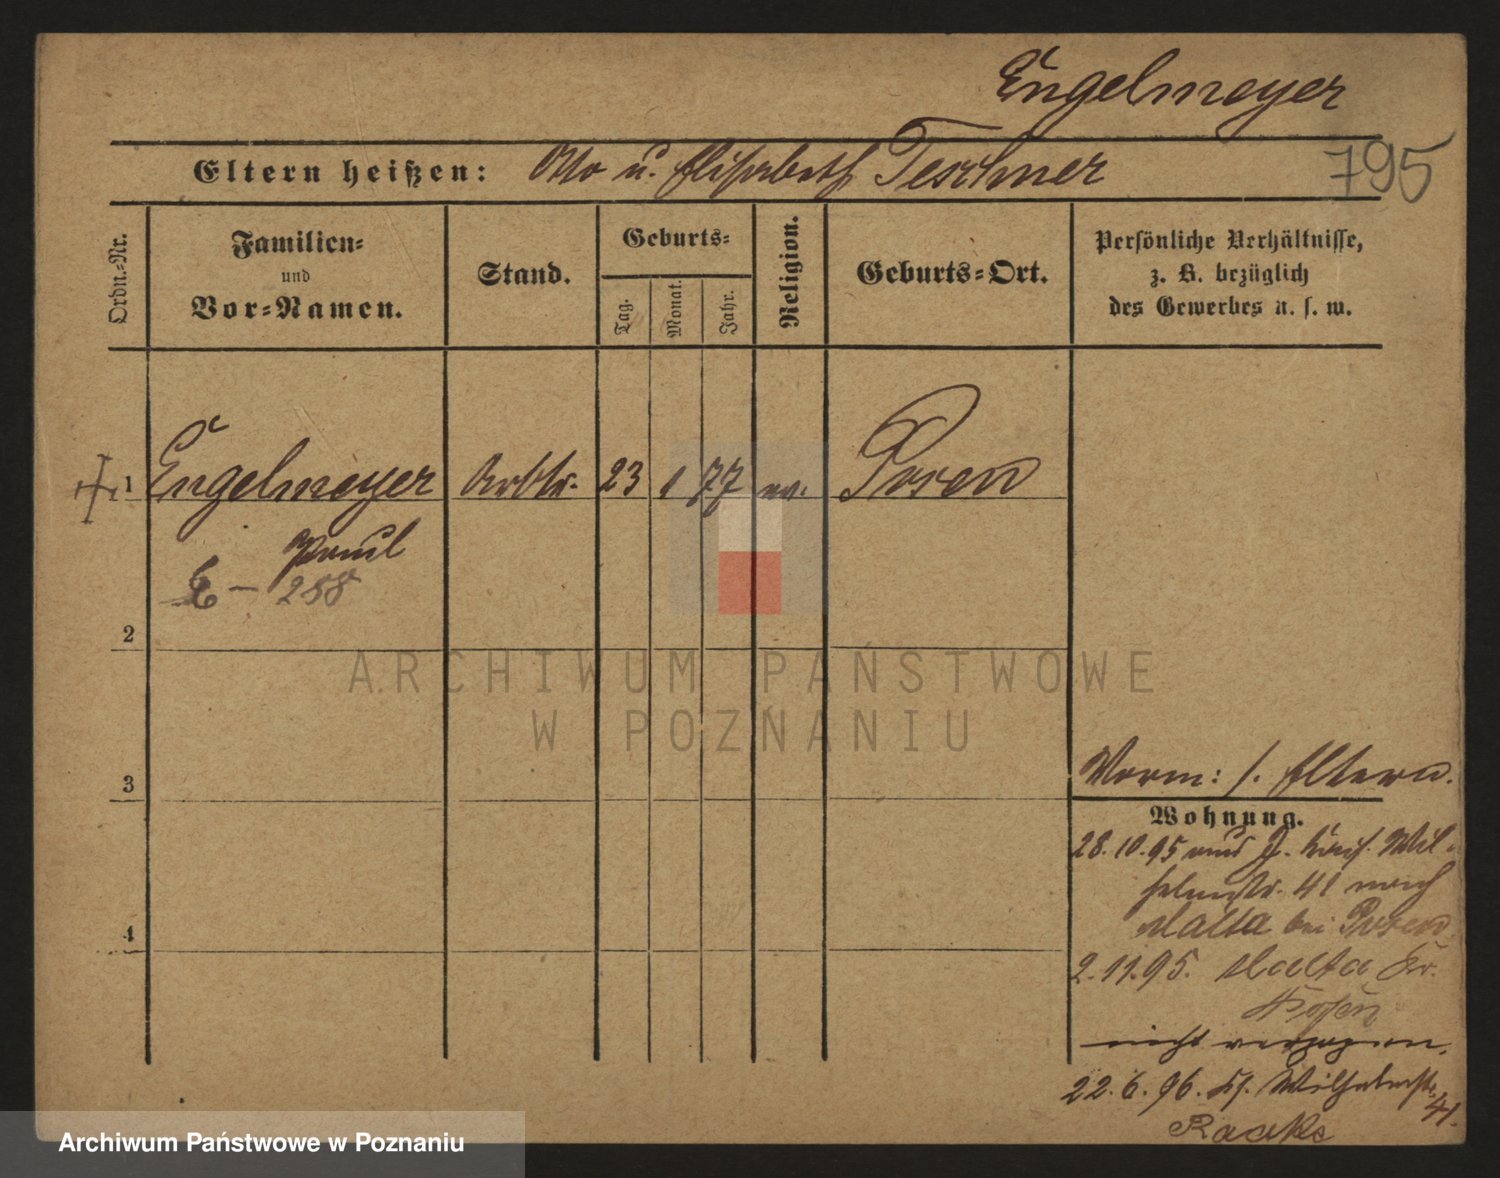 Engelmeyer
Eltern heißen: Otto u. Elisabeth Teschner 795
Ordn.-Nr.
Familien-
und
Vor-Namen.
Stand.
Geburts-
Tag.
Monat.
Jahr.
Religion.
Geburts-Ort.
Persönliche Verhältnisse,
z. B. bezüglich
des Gewerbes u. s. w.
1 Engelmeyer Arbtr. 23 1 77 ev. Posen
Paul
E – 258
2
ARCHIWUM PAŃSTWOWE
W POZNANIU
3
Vorm: s. Eltern.
Wohnung.
28.10.95 Wil-
helmstr. 41 nach
Malta bei Posen
2.11.95. Malta Kr.
Posen
nicht verzogen.
22.6.96. Wilhelmstr.
41.
4
Archiwum Państwowe w Poznaniu